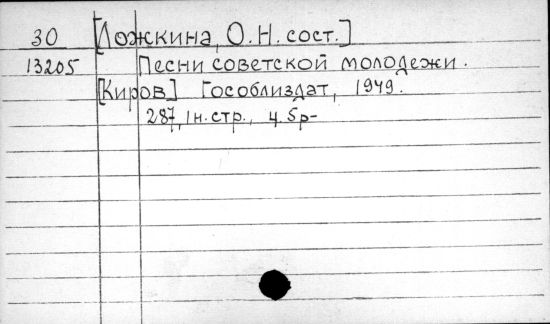 30 [Ложкина, О.Н. сост.]
13205 Песни советской молодежи.
[Киров] Гособлиздат, 1949.
287, 1н. стр., ц. 5р-